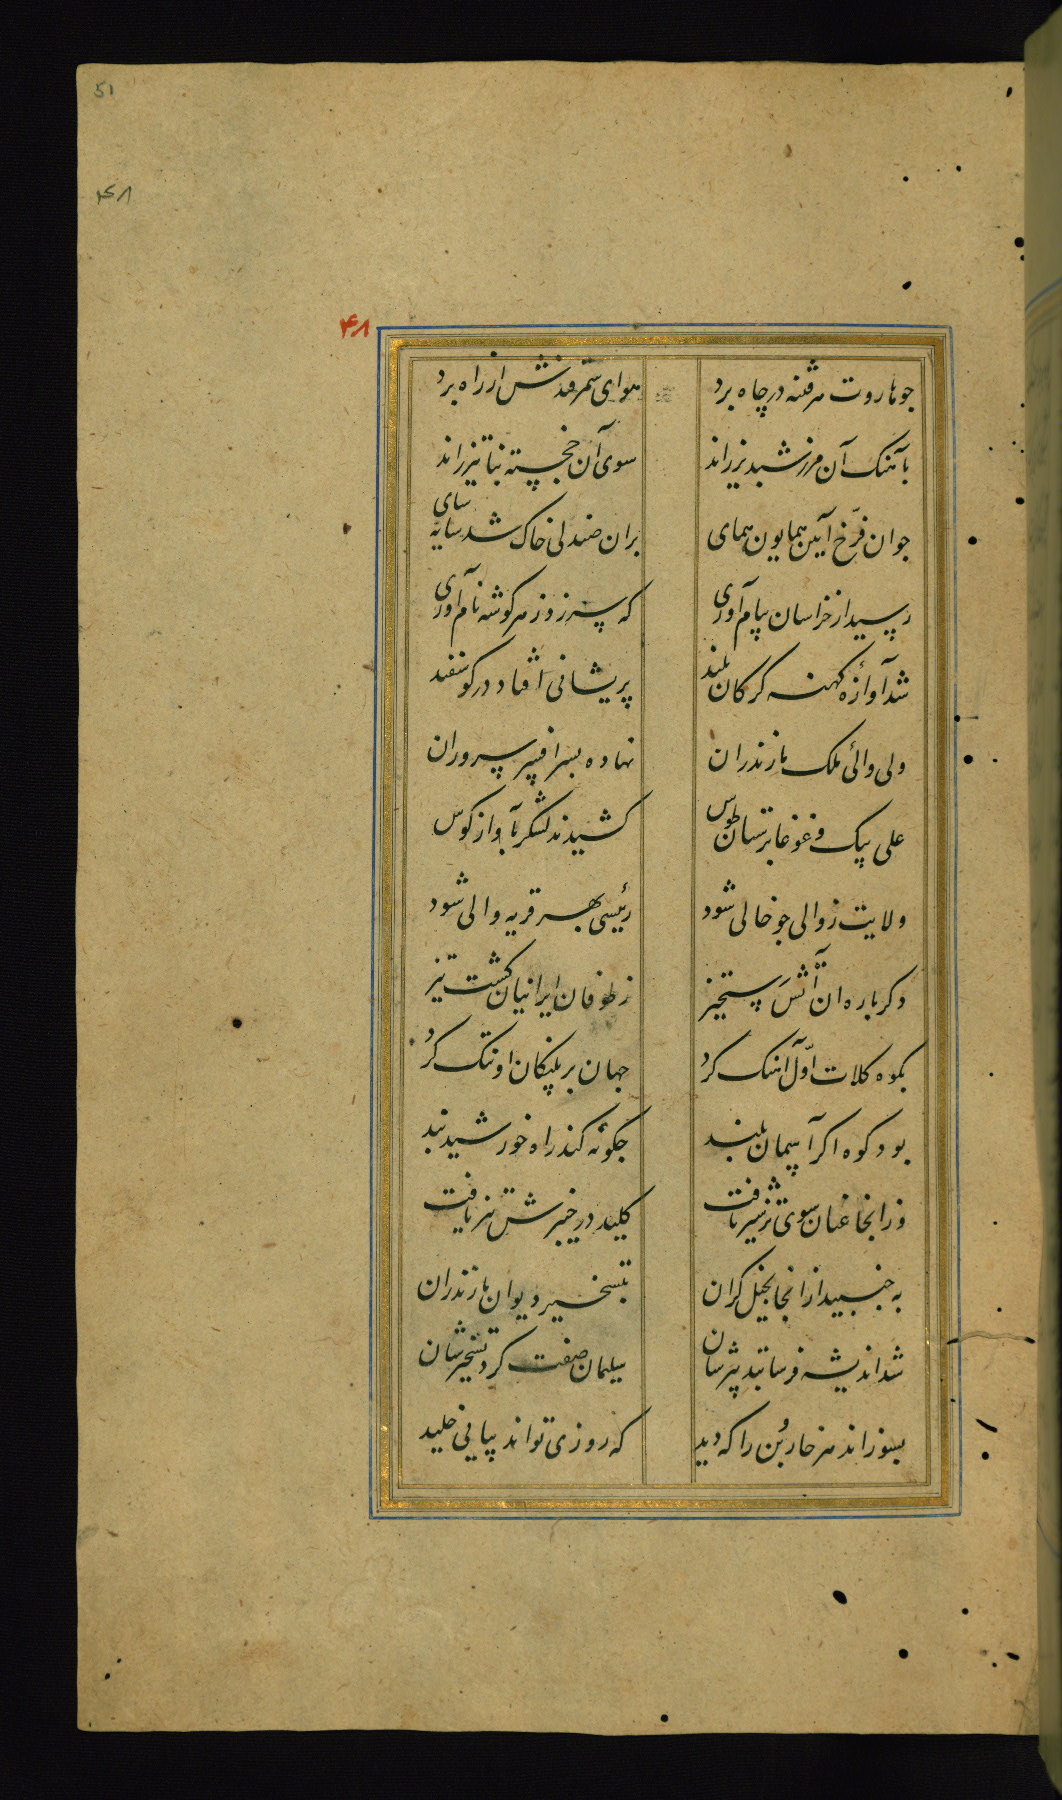 51
۴۸
۴۸
جو هاروت هر فتنه در چاه برد هوای سمرقندش از راه برد
بآهنک آن مرز شبدیز راند سوی آن خجسته بنا تیز راند
جوان فرّخ آیین همایون همای بران صندلی خاک شد سایه سای
رسید از خراسان پیام آوری که سر زد ز هر کوشه نام آوری
شد آوازهٔ کهنه کرکان بلند پریشانی افتاد در کوسفند
ولی والئ ملک مازندران نهاده بسر افسر سروران
علی بیک و غوغا برستان طوس کشیدند لشکر بآواز کوس
ولایت ز والی جو خالی شود رئیسی بهر قریه والی شود
دکرباره آن آتش رستخیز ز طوفان ایرانیان کشت تیز
بکوه کلات اوّل آهنک کرد جهان بر پلنکان او تنک کرد
بود کوه اکر آسمان بلند جکونه کند راه خورشید بند
وزانجا عنان سوی ترشیز تافت کلید در خیبرش نیز یافت
به جنبید ازانجا بخیل کران بتسخیر دیوان مازندران
شد اندیشه فرسا تدبیرشان سلیمان صفت کرد تسخیرشان
بسوزاند هر خاربُن را که دید که روزی تواند بپائی خلید